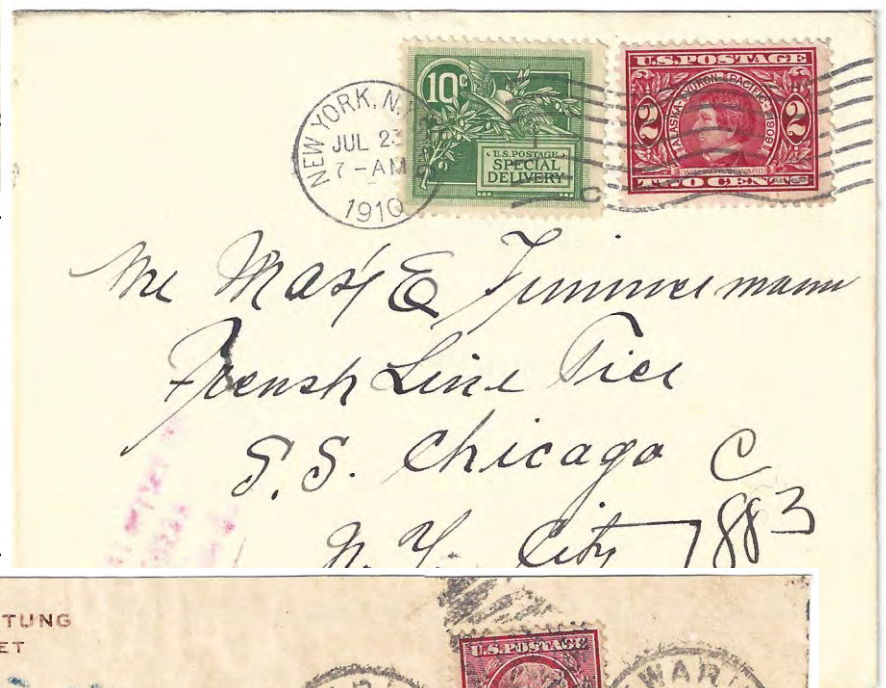 NEW YORK, N.Y.
JUL 23
7-AM
1910
10c
U.S. POSTAGE
SPECIAL
DELIVERY
U.S. POSTAGE
ALASKA-YUKON-PACIFIC-1909
2 2
WILLIAM H. SEWARD
TWO CENTS
Mr Max E Timmermann
French Line Pier
S.S. Chicago C
N.Y. City 7883
TUNG
ET
U.S. POSTAGE
WAR